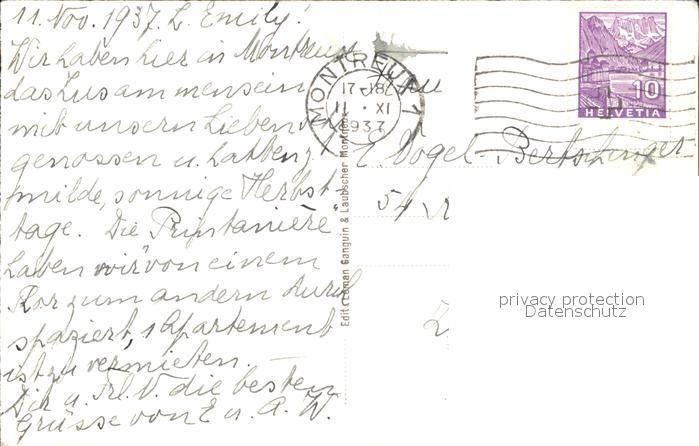 11. Nov. 1937. L. Emily!
Wir haben hier in Montreux
das Zusammensein
mit unsern lieben
genossen u. hatten
milde, sonnige Herbst-
tage. Die "Printanière"
haben wir von einem
zum andern durch
spaziert, 1 Apartement
ist zu vermieten.
Dir u. Frl. V. die besten
Grüsse von E. u. A. W.
Edit. Leman Ganguin & Laubscher Montreux
MONTREUX 1
17-18
11 · XI
1937
10
HELVETIA
E. Vogel-Bertschinger
54
privacy protection
Datenschutz